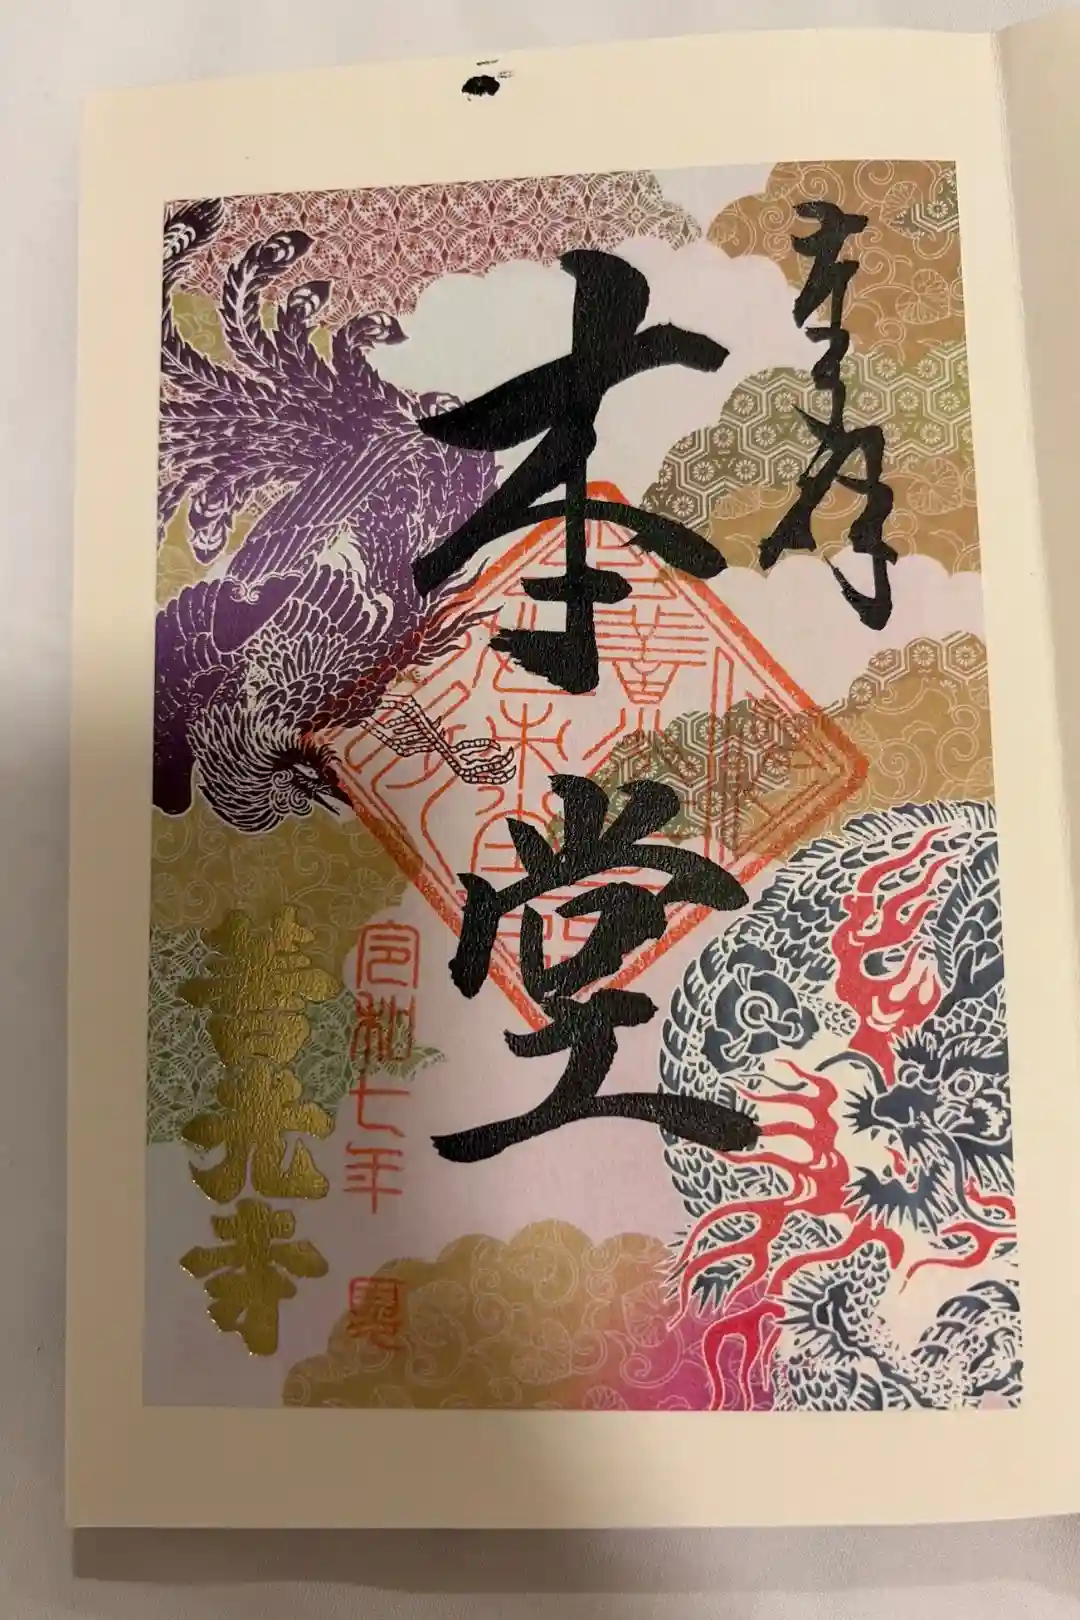 奉拝
本堂
令和七年 夏
善光寺